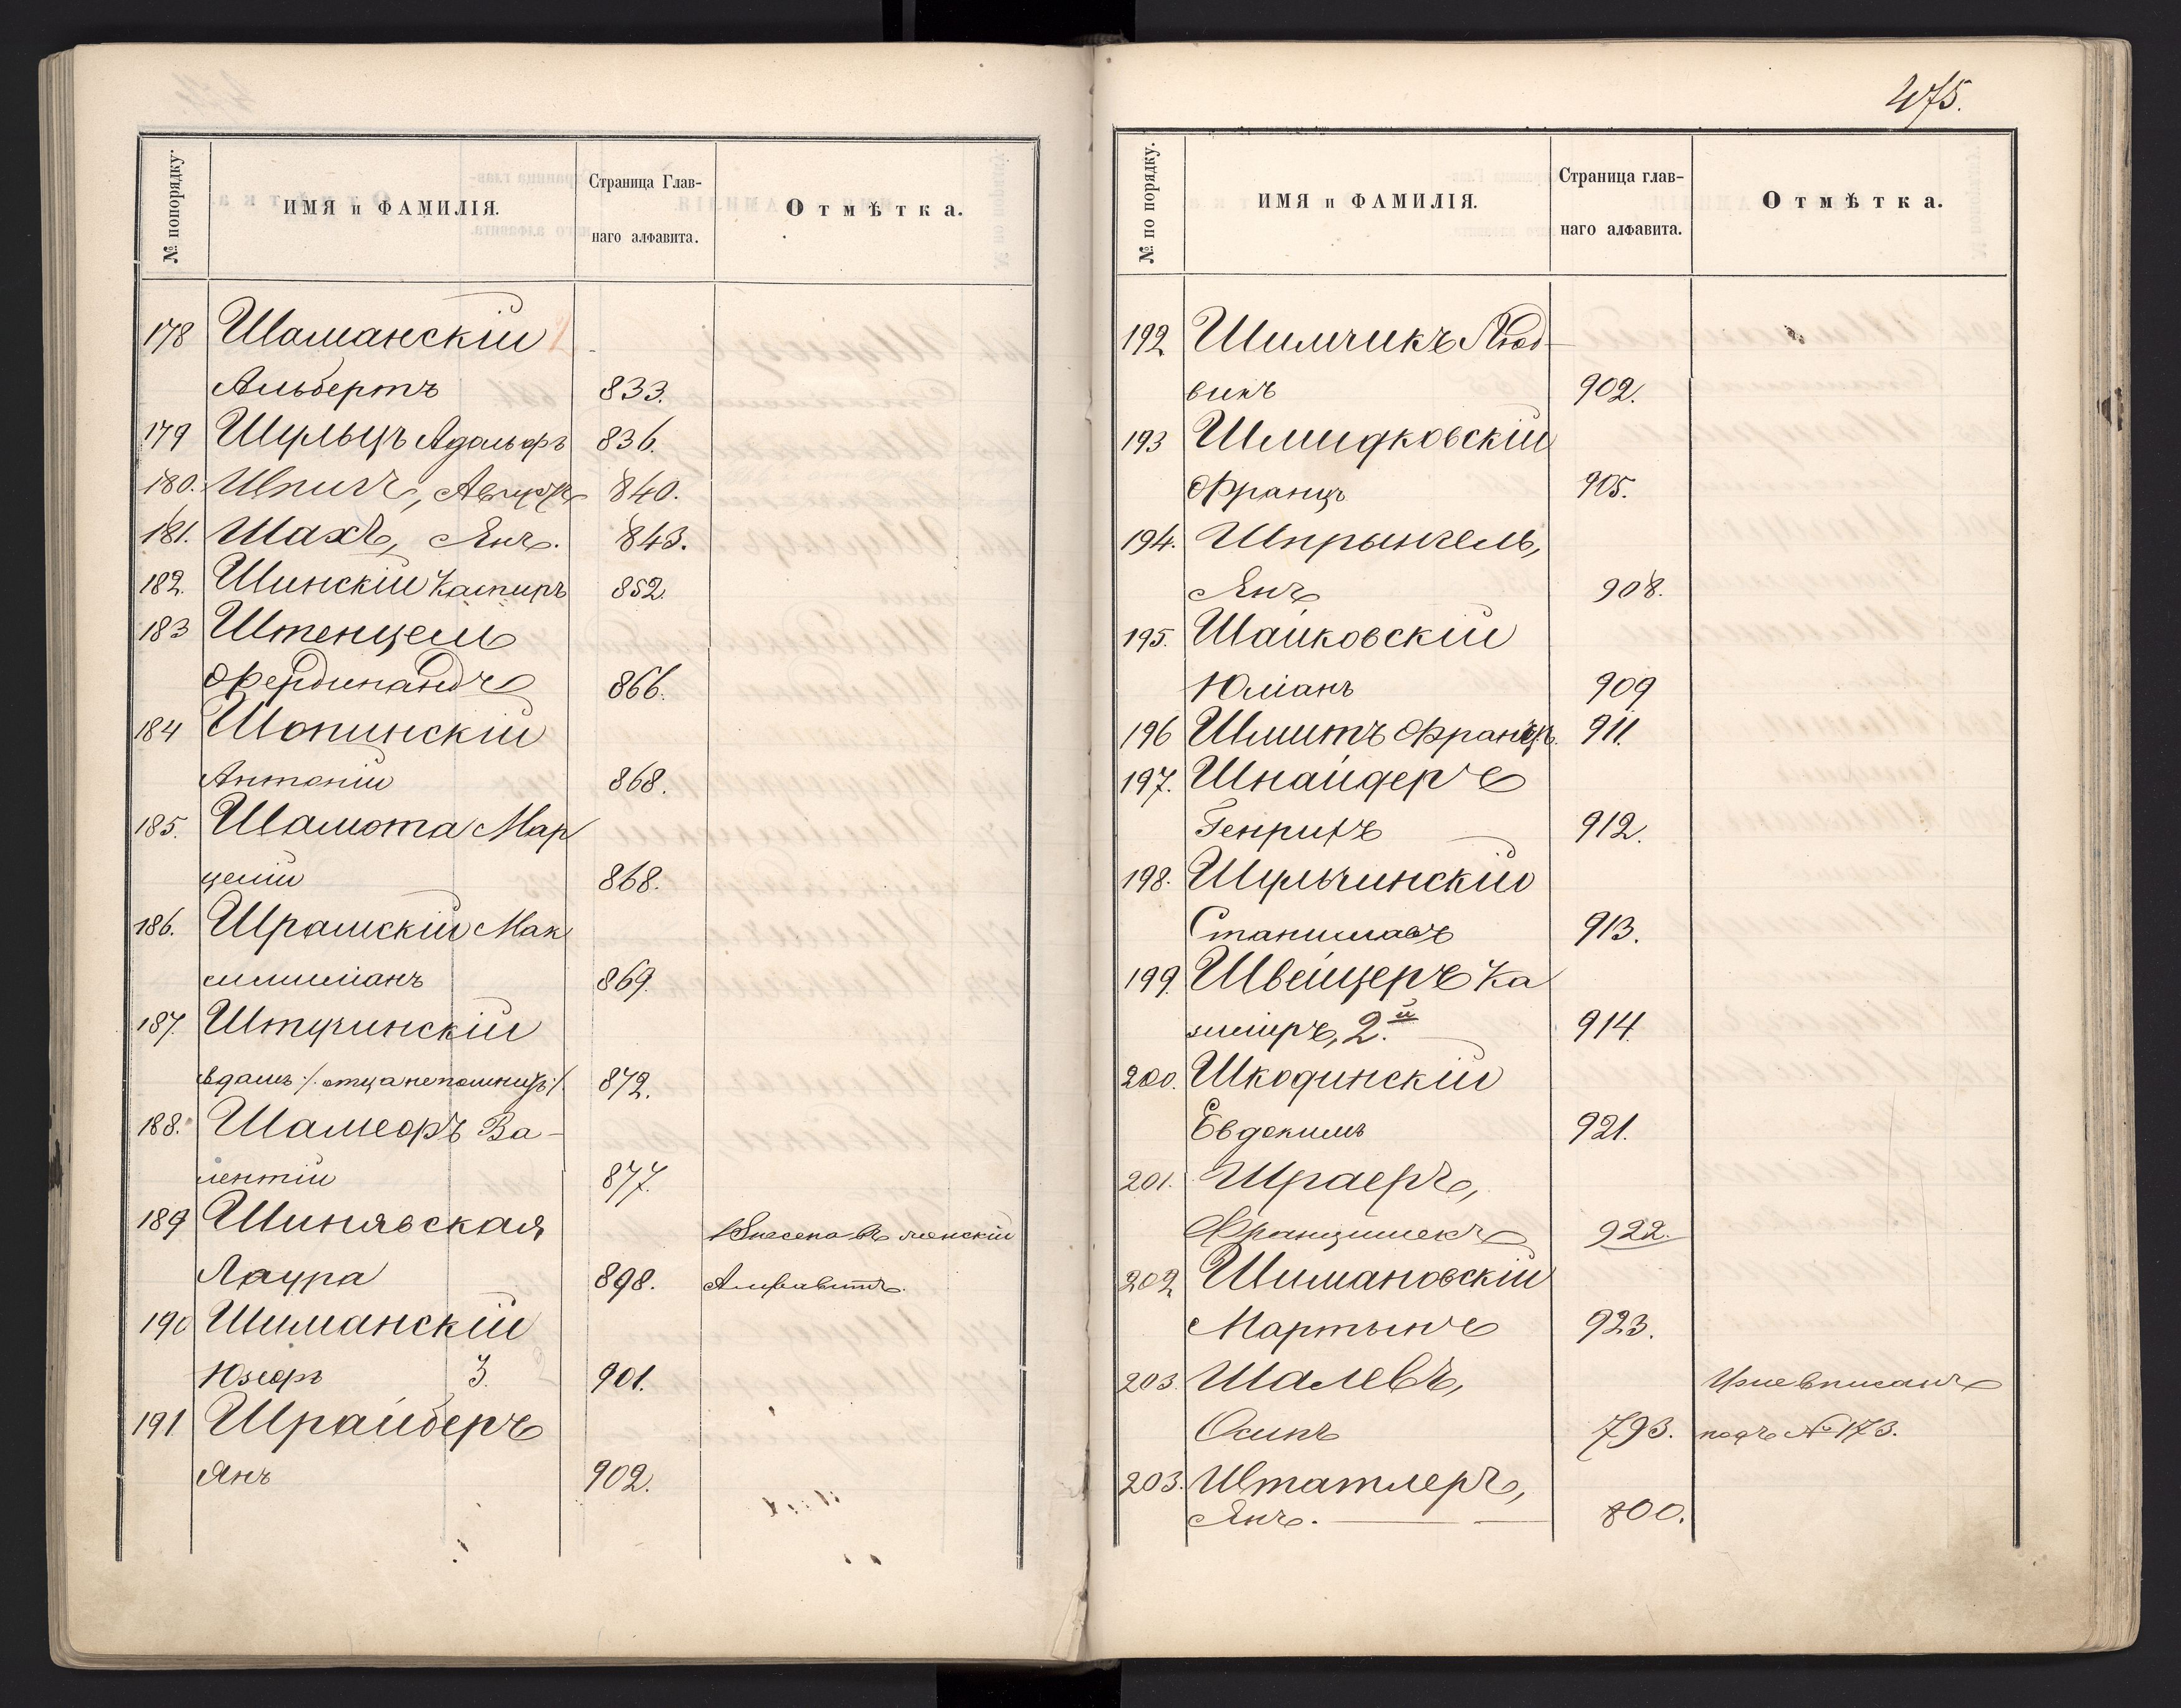 № попорядку.
ИМЯ и ФАМИЛІЯ.
Страница Глав-
наго алфавита.
Отмѣтка.
178 Шаманскій
Альбертъ 833.
179 Шульцъ Адольфъ 836.
180. Шпигъ, Августъ 840.
181. Шахъ, Янъ. 843.
182. Шинскій Каспиръ 852.
183 Штенцель
Фердинандъ 866.
184 Шопинскій
Антоній 868.
185. Шамота Мар
целій 868.
186. Шрамскій Мак
симиліанъ 869.
187. Штучинскій
Адамъ /: отца непомнитъ :/ 872.
188. Шамеоръ Ва-
лентій 877.
189 Шинявская Внесена въ женскій
Лаура 898. Алфавитъ.
190 Шиманскій
Юзефъ 3. 901.
191 Шрайберъ
Янъ 902.
475.
№ по порядку.
ИМЯ и ФАМИЛІЯ.
Страница глав-
наго алфавита.
Отмѣтка.
192 Шимчикъ Люд-
викъ 902.
193 Шмидковскій
Францъ 905.
194. Шпрынгель,
Янъ 908.
195. Шайковскій
Юліанъ 909
196 Шмитъ Францъ. 911.
197. Шнайдеръ
Генрихъ 912.
198. Шульчинскій
Станиславъ 913.
199. Швейцеръ Ка
зиміръ, 2.й 914.
200. Шкодинскій
Евдокимъ 921.
201. Шраеръ,
Францишекъ 922.
202 Шимановскій
Мартынъ 923.
203. Шалевъ, Уже вписанъ
Осипъ 793. подъ № 173.
203. Штатлеръ,
Янъ. 800.